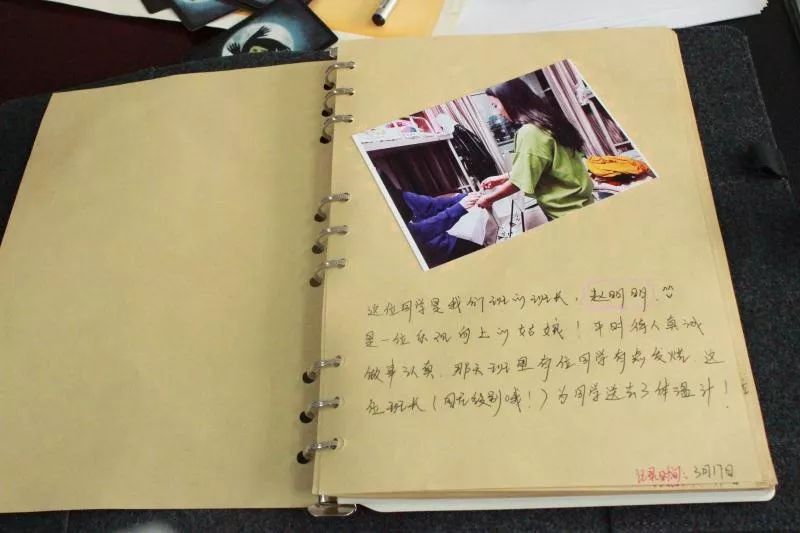 这位同学是我们班的班长，赵明明.
是一位乐观向上的姑娘！平时待人真诚
做事认真. 那天班里有位同学有点发烧. 这
位班长（同在级别哦！）为同学送去了体温计！
记录时间：3月17日